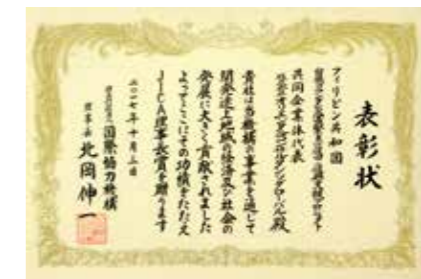 表彰状
フィリピン共和国
共同企業体代表
貴社は当機構の事業を通して
開発途上地域の経済及び社会の
発展に大きく貢献されました
よってここにその功績をたたえ
JICA理事長賞を贈ります
二〇一七年十月三日
国際協力機構
理事長 北岡伸一